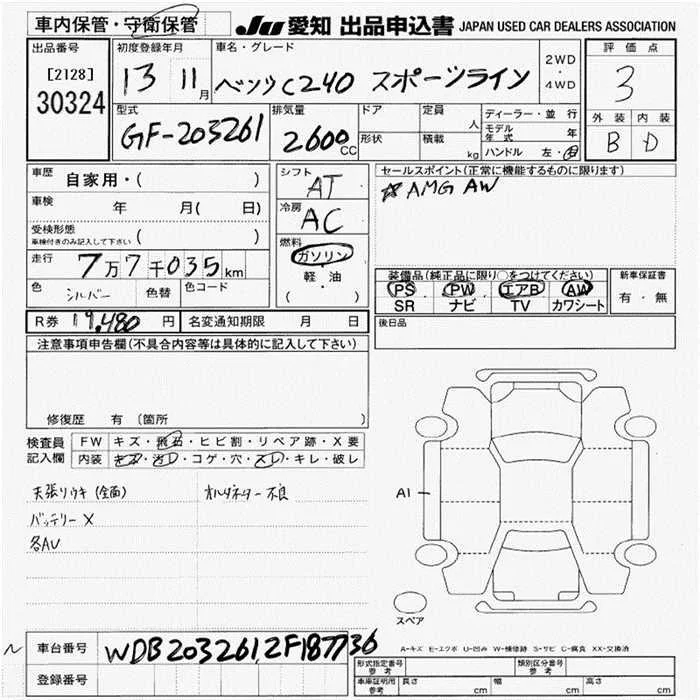 車内保管・守衛保管
JU 愛知 出品申込書 JAPAN USED CAR DEALERS ASSOCIATION
出品番号
[2128]
30324
初度登録年月
13 11月
車名・グレード
ベンツC240 スポーツライン
2WD
・
4WD
評価点
3
外装 内装
B D
型式
GF-203261
排気量
2600 CC
ドア
形状
定員 人
積載 kg
ディーラー・並行
モデル年式 年
ハンドル 左・右
車歴 自家用・( )
車検 年 月( 日)
受検形態
車検付きのみ記入して下さい ( )
走行 7万7千035km
色 シルバー 色替 色コード
シフト AT
冷房 AC
燃料
ガソリン
軽・油
( )
セールスポイント(正常に機能するものに限ります)
☆AMG AW
装備品(純正品に限り○をつけてください)
PS PW エアB AW
SR ナビ TV カワシート
新車保証書
有・無
R券 19,480 円 名変通知期限 月 日
後日品
注意事項申告欄(不具合内容等は具体的に記入して下さい)
修復歴 有 〔箇所 〕
検査員記入欄
FW キズ・飛石・ヒビ割・リペア跡・X要
内装 キズ・汚レ・コゲ・穴・スレ・キレ・破レ
天張リウキ(全面) オルタネター不良
バッテリーX
各AU
A1
スペア
A-キズ E-エクボ U-凹み W-補修跡 S-サビ C-腐食 XX-交換済
車台番号 WDB203261,2F187736
登録番号
形式指定番号 参考
類別区分番号 参考
車庫証明用 参考 長さ cm 幅 cm 高さ cm